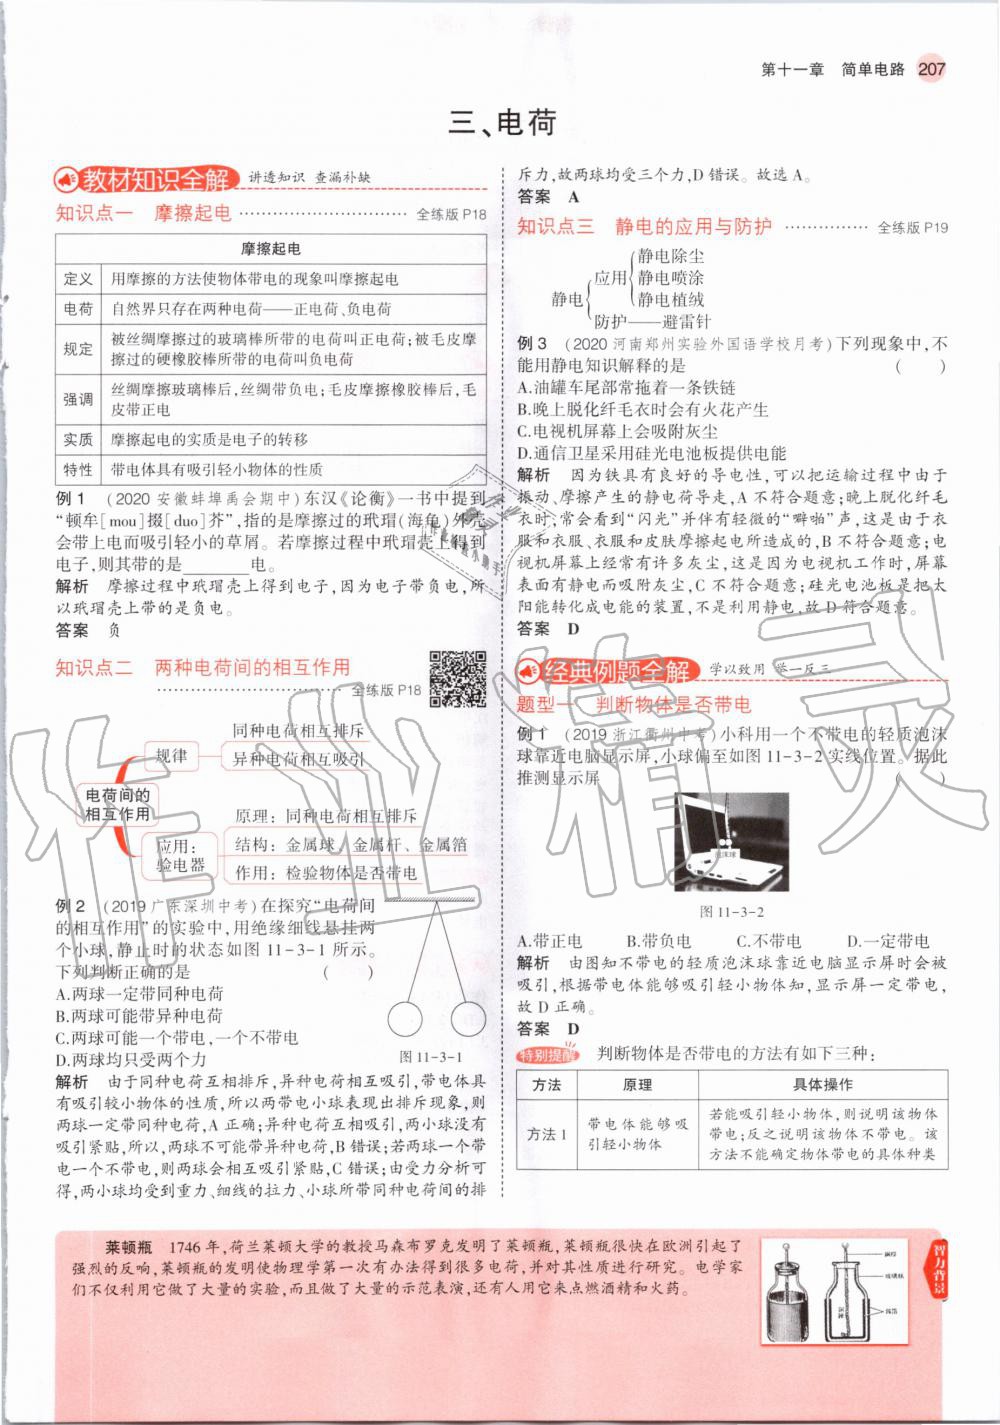 第十一章 简单电路 207
三、电荷
教材知识全解 讲透知识 查漏补缺
知识点一 摩擦起电 ………………………… 全练版 P18
摩擦起电
定义 用摩擦的方法使物体带电的现象叫摩擦起电
电荷 自然界只存在两种电荷——正电荷、负电荷
规定 被丝绸摩擦过的玻璃棒所带的电荷叫正电荷;被毛皮摩
擦过的硬橡胶棒所带的电荷叫负电荷
强调 丝绸摩擦玻璃棒后,丝绸带负电;毛皮摩擦橡胶棒后,毛
皮带正电
实质 摩擦起电的实质是电子的转移
特性 带电体具有吸引轻小物体的性质
例 1 (2020 安徽蚌埠禹会期中)东汉《论衡》一书中提到
“顿牟[mou]掇[duo]芥”,指的是摩擦过的玳瑁(海龟)外壳
会带上电而吸引轻小的草屑。若摩擦过程中玳瑁壳上得到
电子,则其带的是________电。
解析 摩擦过程中玳瑁壳上得到电子,因为电子带负电,所
以玳瑁壳上带的是负电。
答案 负
知识点二 两种电荷间的相互作用
………………………… 全练版 P18
电荷间的
相互作用
规律
同种电荷相互排斥
异种电荷相互吸引
应用:
验电器
原理:同种电荷相互排斥
结构:金属球、金属杆、金属箔
作用:检验物体是否带电
例 2 (2019 广东深圳中考)在探究“电荷间
的相互作用”的实验中,用绝缘细线悬挂两
个小球,静止时的状态如图 11-3-1 所示。
下列判断正确的是 ( )
A.两球一定带同种电荷
B.两球可能带异种电荷
C.两球可能一个带电,一个不带电
D.两球均只受两个力
图 11-3-1
解析 由于同种电荷互相排斥,异种电荷相互吸引,带电体具
有吸引较小物体的性质,所以两带电小球表现出排斥现象,则
两球一定带同种电荷,A 正确;异种电荷互相吸引,两小球没有
吸引紧贴,所以,两球不可能带异种电荷,B 错误;若两球一个带
电一个不带电,则两球会相互吸引紧贴,C 错误;由受力分析可
得,两小球均受到重力、细线的拉力、小球所带同种电荷间的排
斥力,故两球均受三个力,D 错误。故选 A。
答案 A
知识点三 静电的应用与防护 …………… 全练版 P19
静电
应用
静电除尘
静电喷涂
静电植绒
防护——避雷针
例 3 (2020 河南郑州实验外国语学校月考)下列现象中,不
能用静电知识解释的是 ( )
A.油罐车尾部常拖着一条铁链
B.晚上脱化纤毛衣时会有火花产生
C.电视机屏幕上会吸附灰尘
D.通信卫星采用硅光电池板提供电能
解析 因为铁具有良好的导电性,可以把运输过程中由于
振动、摩擦产生的静电荷导走,A 不符合题意;晚上脱化纤毛
衣时,常会看到“闪光”并伴有轻微的“噼啪”声,这是由于衣
服和衣服、衣服和皮肤摩擦起电所造成的,B 不符合题意;电
视机屏幕上经常有许多灰尘,这是因为电视机工作时,屏幕
表面有静电而吸附灰尘,C 不符合题意;硅光电池板是把太
阳能转化成电能的装置,不是利用静电,故 D 符合题意。
答案 D
经典例题全解 学以致用 举一反三
题型一 判断物体是否带电
例 1 (2019 浙江衢州中考)小科用一个不带电的轻质泡沫
球靠近电脑显示屏,小球偏至如图 11-3-2 实线位置。据此
推测显示屏 ( )
泡沫球
图 11-3-2
A.带正电 B.带负电 C.不带电 D.一定带电
解析 由图知不带电的轻质泡沫球靠近电脑显示屏时会被
吸引,根据带电体能够吸引轻小物体知,显示屏一定带电,
故 D 正确。
答案 D
特别提醒 判断物体是否带电的方法有如下三种:
方法 原理 具体操作
方法 1 带电体能够吸
引轻小物体
若能吸引轻小物体,则说明该物体
带电;反之说明该物体不带电。该
方法不能确定物体带电的具体种类
莱顿瓶 1746 年,荷兰莱顿大学的教授马森布罗克发明了莱顿瓶,莱顿瓶很快在欧洲引起了
强烈的反响,莱顿瓶的发明使物理学第一次有办法得到很多电荷,并对其性质进行研究。电学家
们不仅利用它做了大量的实验,而且做了大量的示范表演,还有人用它来点燃酒精和火药。
智力背景
作业精灵